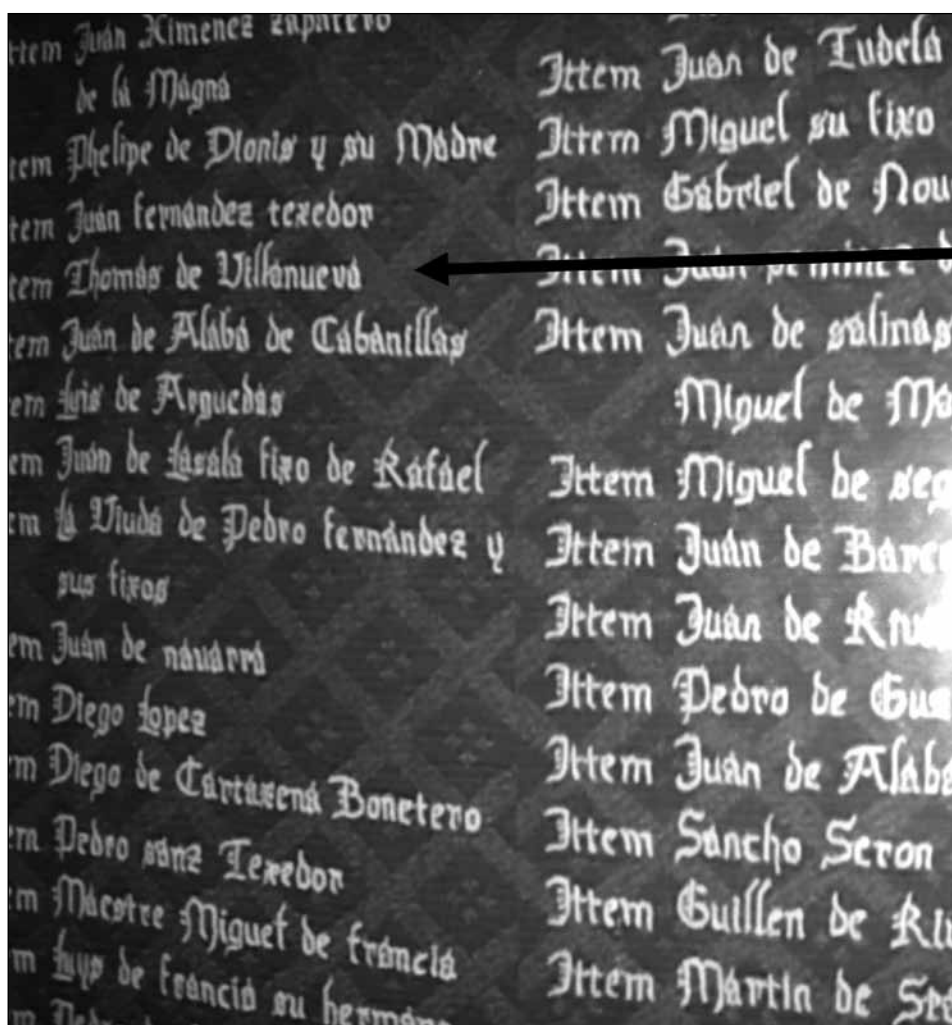 ttem Juan Ximenez zapatero
de la Magna
tem Phelipe de Dionis y su Madre
tem Juan fernandez texedor
tem Thomas de Villanueva
em Juan de Alaba de Cabanillas
em Luis de Arguedas
em Juan de Lasala fixo de Rafael
em La Viuda de Pedro fernandez y
sus fixos
em Juan de navarra
em Diego Lopez
m Diego de Cartaxena Bonetero
em Pedro sanz Texedor
m Maestre Miguel de francia
m Luys de francia su hermano
m Pedro
Ittem Juan de Tudela
Ittem Miguel su fixo
Ittem Gabriel de
Ittem Juan de
Ittem Juan de salinas
Miguel de
Ittem Miguel de
Ittem Juan de
Ittem Juan de
Ittem Pedro de
Ittem Juan de Alaba
Ittem Sancho Seron
Ittem Guillen de
Ittem Martin de